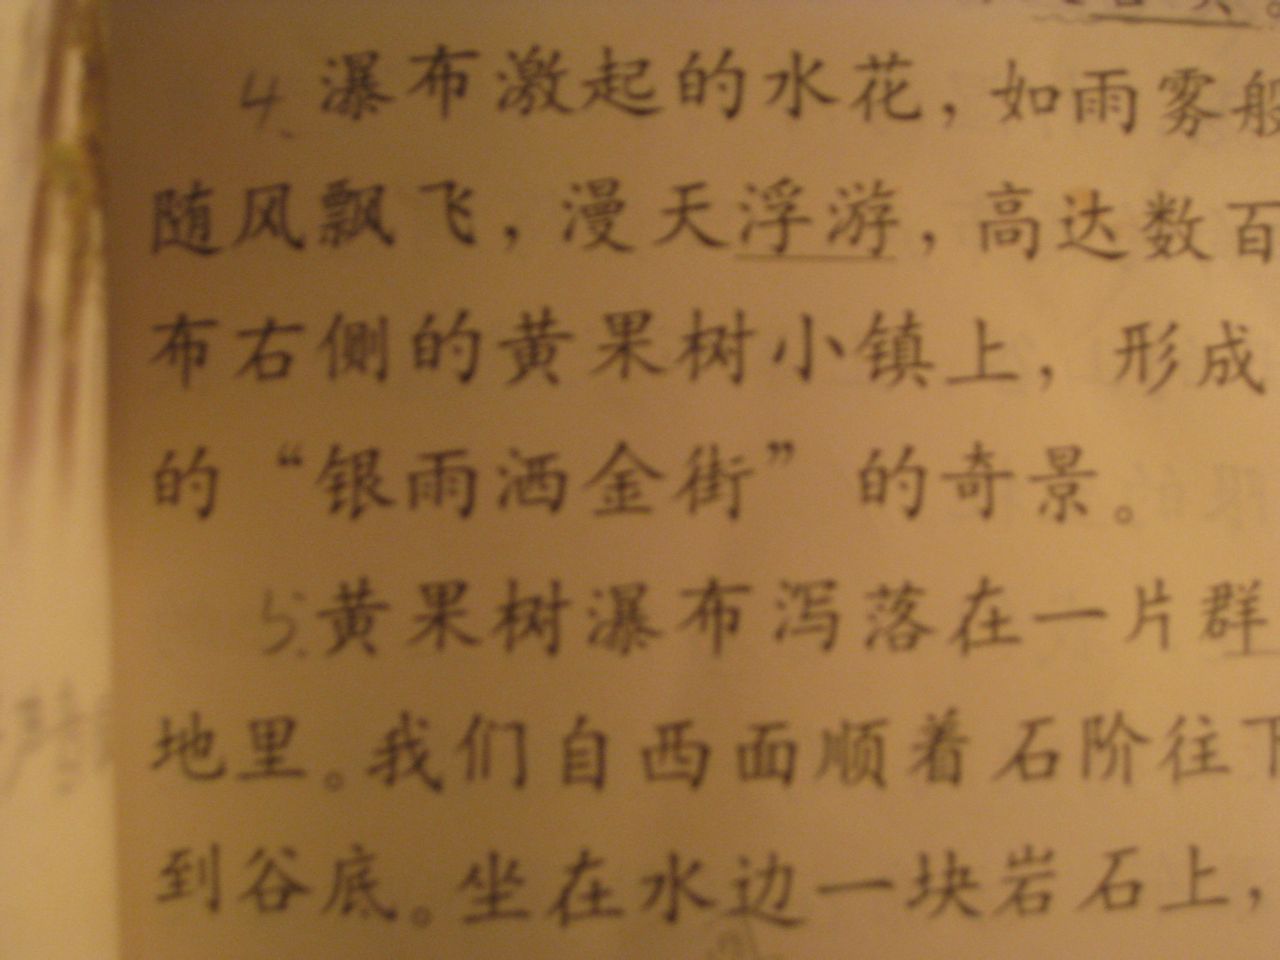 4、瀑布激起的水花，如雨雾般
随风飘飞，漫天浮游，高达数百
布右侧的黄果树小镇上，形成
的“银雨洒金街”的奇景。
5、黄果树瀑布泻落在一片群
地里。我们自西面顺着石阶往下
到谷底。坐在水边一块岩石上，